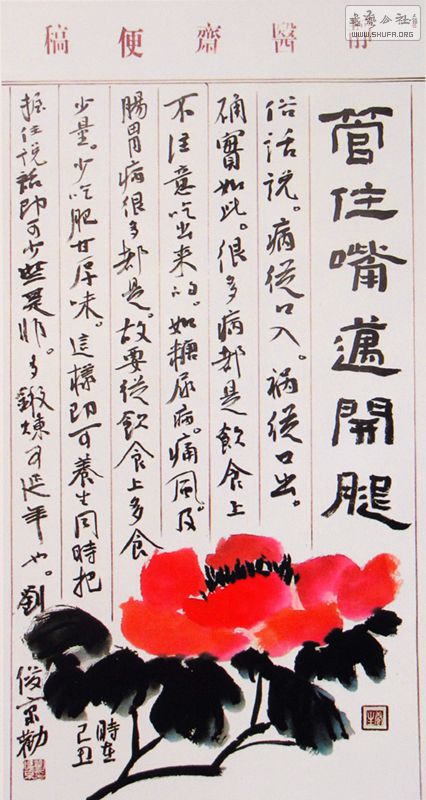 WWW.SHUFA.ORG
醫齋便稿
管住嘴邁開腿
俗話說。病從口入。禍從口出。
确實如此。很多病都是飲食上
不注意吃出來的。如糖尿病。痛風。及
腸胃病很多都是。故要從飲食上多食
少量。少吃肥甘厚味。這樣即可養生同時把
握住說話即可少些是非。多鍛煉可延年也。劉
俊京勸
時在
己丑